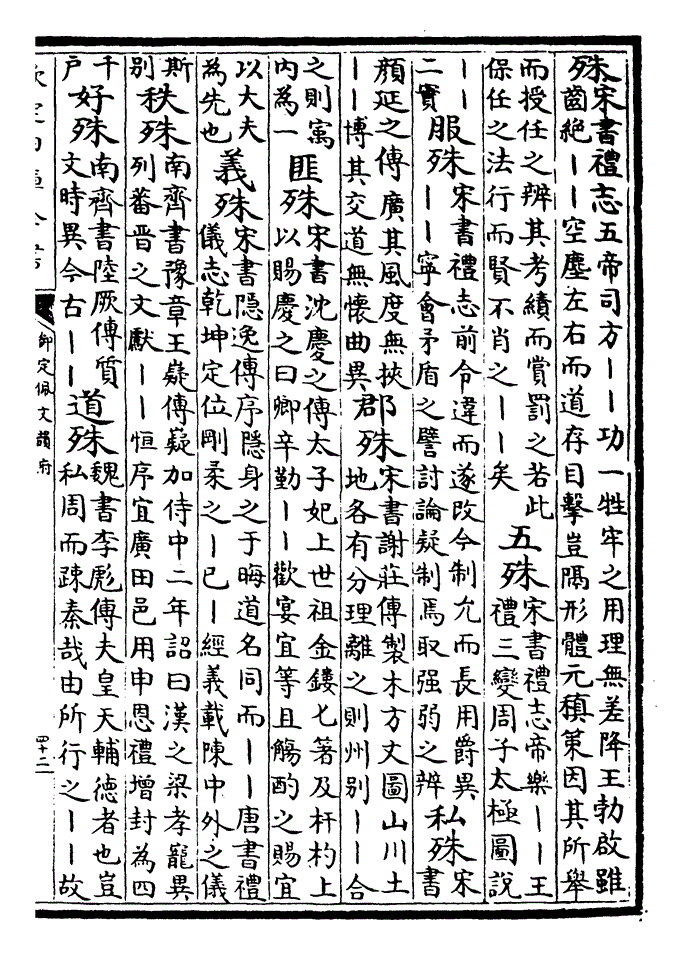 殊
宋書禮志五帝司方||功一牲牢之用理無差降王勃啟雖
齒絕||空塵左右而道存目擊豈隔形體元稹策因其所舉
而授任之辨其考績而賞罰之若此
保任之法行而賢不肖之||矣
五殊
宋書禮志帝樂||王
禮三變周子太極圖說
||
二實
服殊
宋書禮志前令違而遂改今制允而長用爵異
||寧會矛盾之譬討論疑制焉取强弱之辨
私殊
宋
書
顏延之傳廣其風度無挾
||博其交道無懷曲異
郡殊
宋書謝莊傳製木方丈圖山川土
地各有分理離之則州别||合
之則寓
内為一
匪殊
宋書沈慶之傳太子妃上世祖金鏤匕箸及杅杓上
以賜慶之曰卿辛勤||歡宴宜等且觴酌之賜宜
以大夫
為先也
義殊
宋書隱逸傳序隱身之于晦道名同而||唐書禮
儀志乾坤定位剛柔之|已|經義載陳中外之儀
斯
别
秩殊
南齊書豫章王嶷傳嶷加侍中二年詔曰漢之梁孝寵異
列蕃晉之文獻||恒序宜廣田邑用申恩禮增封為四
千
户
好殊
南齊書陸厥傳質
文時異今古||
道殊
魏書李彪傳夫皇天輔德者也豈
私周而疎秦哉由所行之||故
欽定四庫全書
御定佩文韻府
四十二